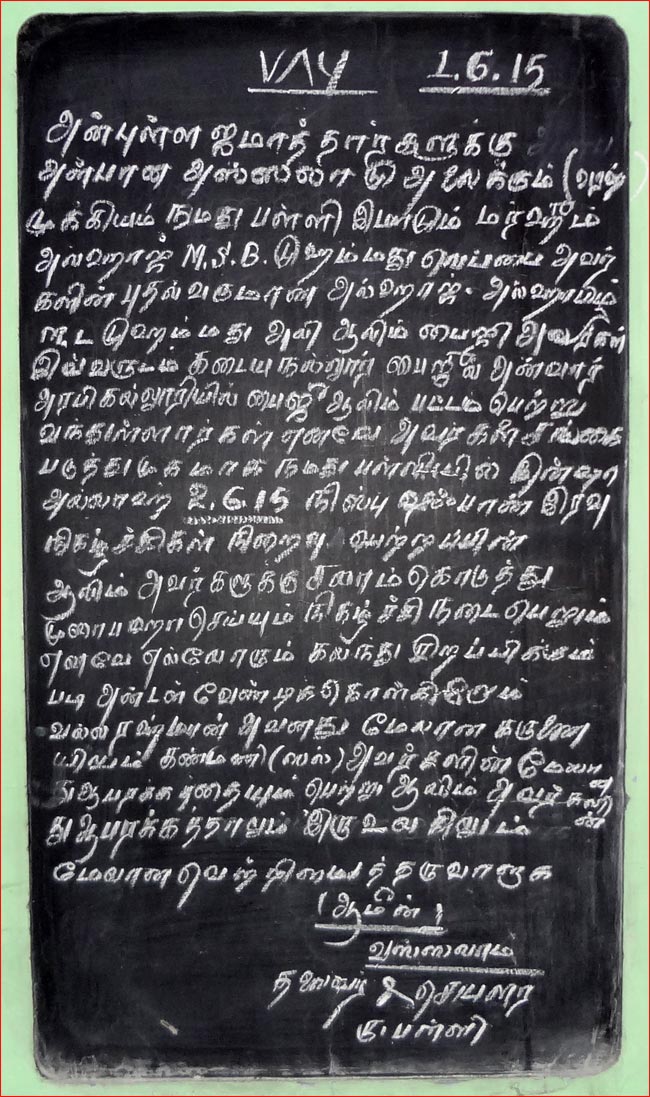 VAY 1.6.15
அன்புள்ள ஜமாத்தார்களுக்கு
அன்பான அஸ்ஸலாமு அலைக்கும் (வரஹ்)
முக்கியம் நமது பள்ளி இமாமும் மர்ஹூம்
அல்ஹாஜ் M.S.B. முஹம்மது லெப்பை அவர்
களின் புதல்வருமான அல்ஹாஜ். அல்ஹாபிழ்
முஹம்மது அலி ஆலிம் பைஜி அவர்கள்
இவ்வருடம் கடையநல்லூர் பைஜுல் அன்வார்
அரபிகல்லூரியில் பைஜி ஆலிம் பட்டம் பெற்று
வந்துள்ளார்கள் எனவே அவர்களை சங்கை
படுத்துமுகமாக நமது பள்ளியில் இன்ஷா
அல்லாஹ் 2.6.15 நிஸ்பு ஷஃபான் இரவு
நிகழ்ச்சிகள் நிறைவு பெற்றப்பின்
ஆலிம் அவர்களுக்கு சலாம் கொடுத்து
முஸாபஹா செய்யும் நிகழ்ச்சி நடைபெறும்
எனவே எல்லோரும் கலந்து சிறப்பிக்கும்
படி அன்டன் வேண்டிக் கொள்கிறோம்
வல்ல ரஹ்மான் அவனது மேலான கருணை
யையும் கண்மணி (ஸல்) அவர்களின் மேலான
துஆபரக்கத்தையும் பெற்று ஆலிம் அவர்களின்
துஆபரக்கத்தாலும் இரு உலகிலும்
மேலான வெற்றியைத் தருவானாக
(ஆமீன்)
வஸ்ஸலாம்
தலைவர் & செயலர்
கு.பள்ளி